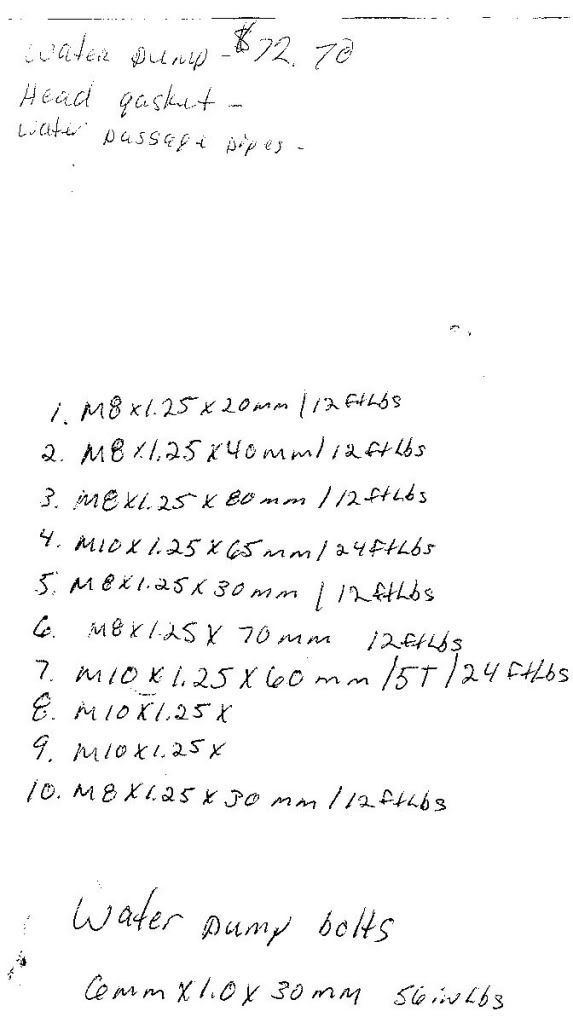 Water Pump - $72.70
Head gasket -
Water passage pipes -
1. M8x1.25x20mm/12ftLbs
2. M8x1.25x40mm/12ftLbs
3. M8x1.25x80mm/12ftLbs
4. M10x1.25x65mm/24ftLbs
5. M8x1.25x30mm/12ftLbs
6. M8x1.25x70mm 12ftLbs
7. M10x1.25x60mm/5T/24ftLbs
8. M10x1.25x
9. M10x1.25x
10. M8x1.25x30mm/12ftLbs
Water Pump bolts
6mmx1.0x30mm 56inLbs